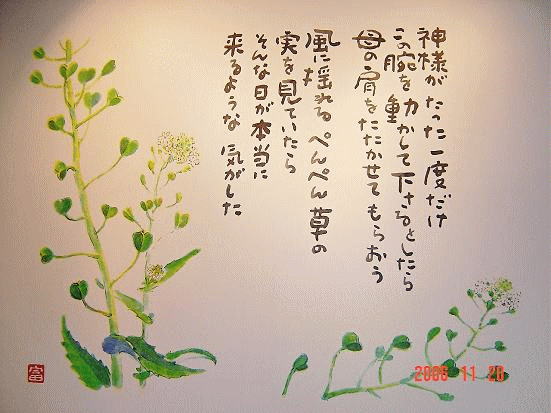 神様がたった一度だけ
この腕を動かして下さるとしたら
母の肩をたたかせてもらおう
風に揺れるぺんぺん草の
実を見ていたら
そんな日が本当に
来るような気がした
富
2006 11 28